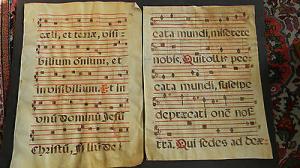 cæli, et terræ, visi
bilium omnium, et
invisibilium. Et in
unū dominū Jesū
Christū, Filiū de
cata mundi, miserere
nobis. Qui tollis pec
cata mundi, suscipe
deprecati onē nos
trā. Qui sedes ad dex